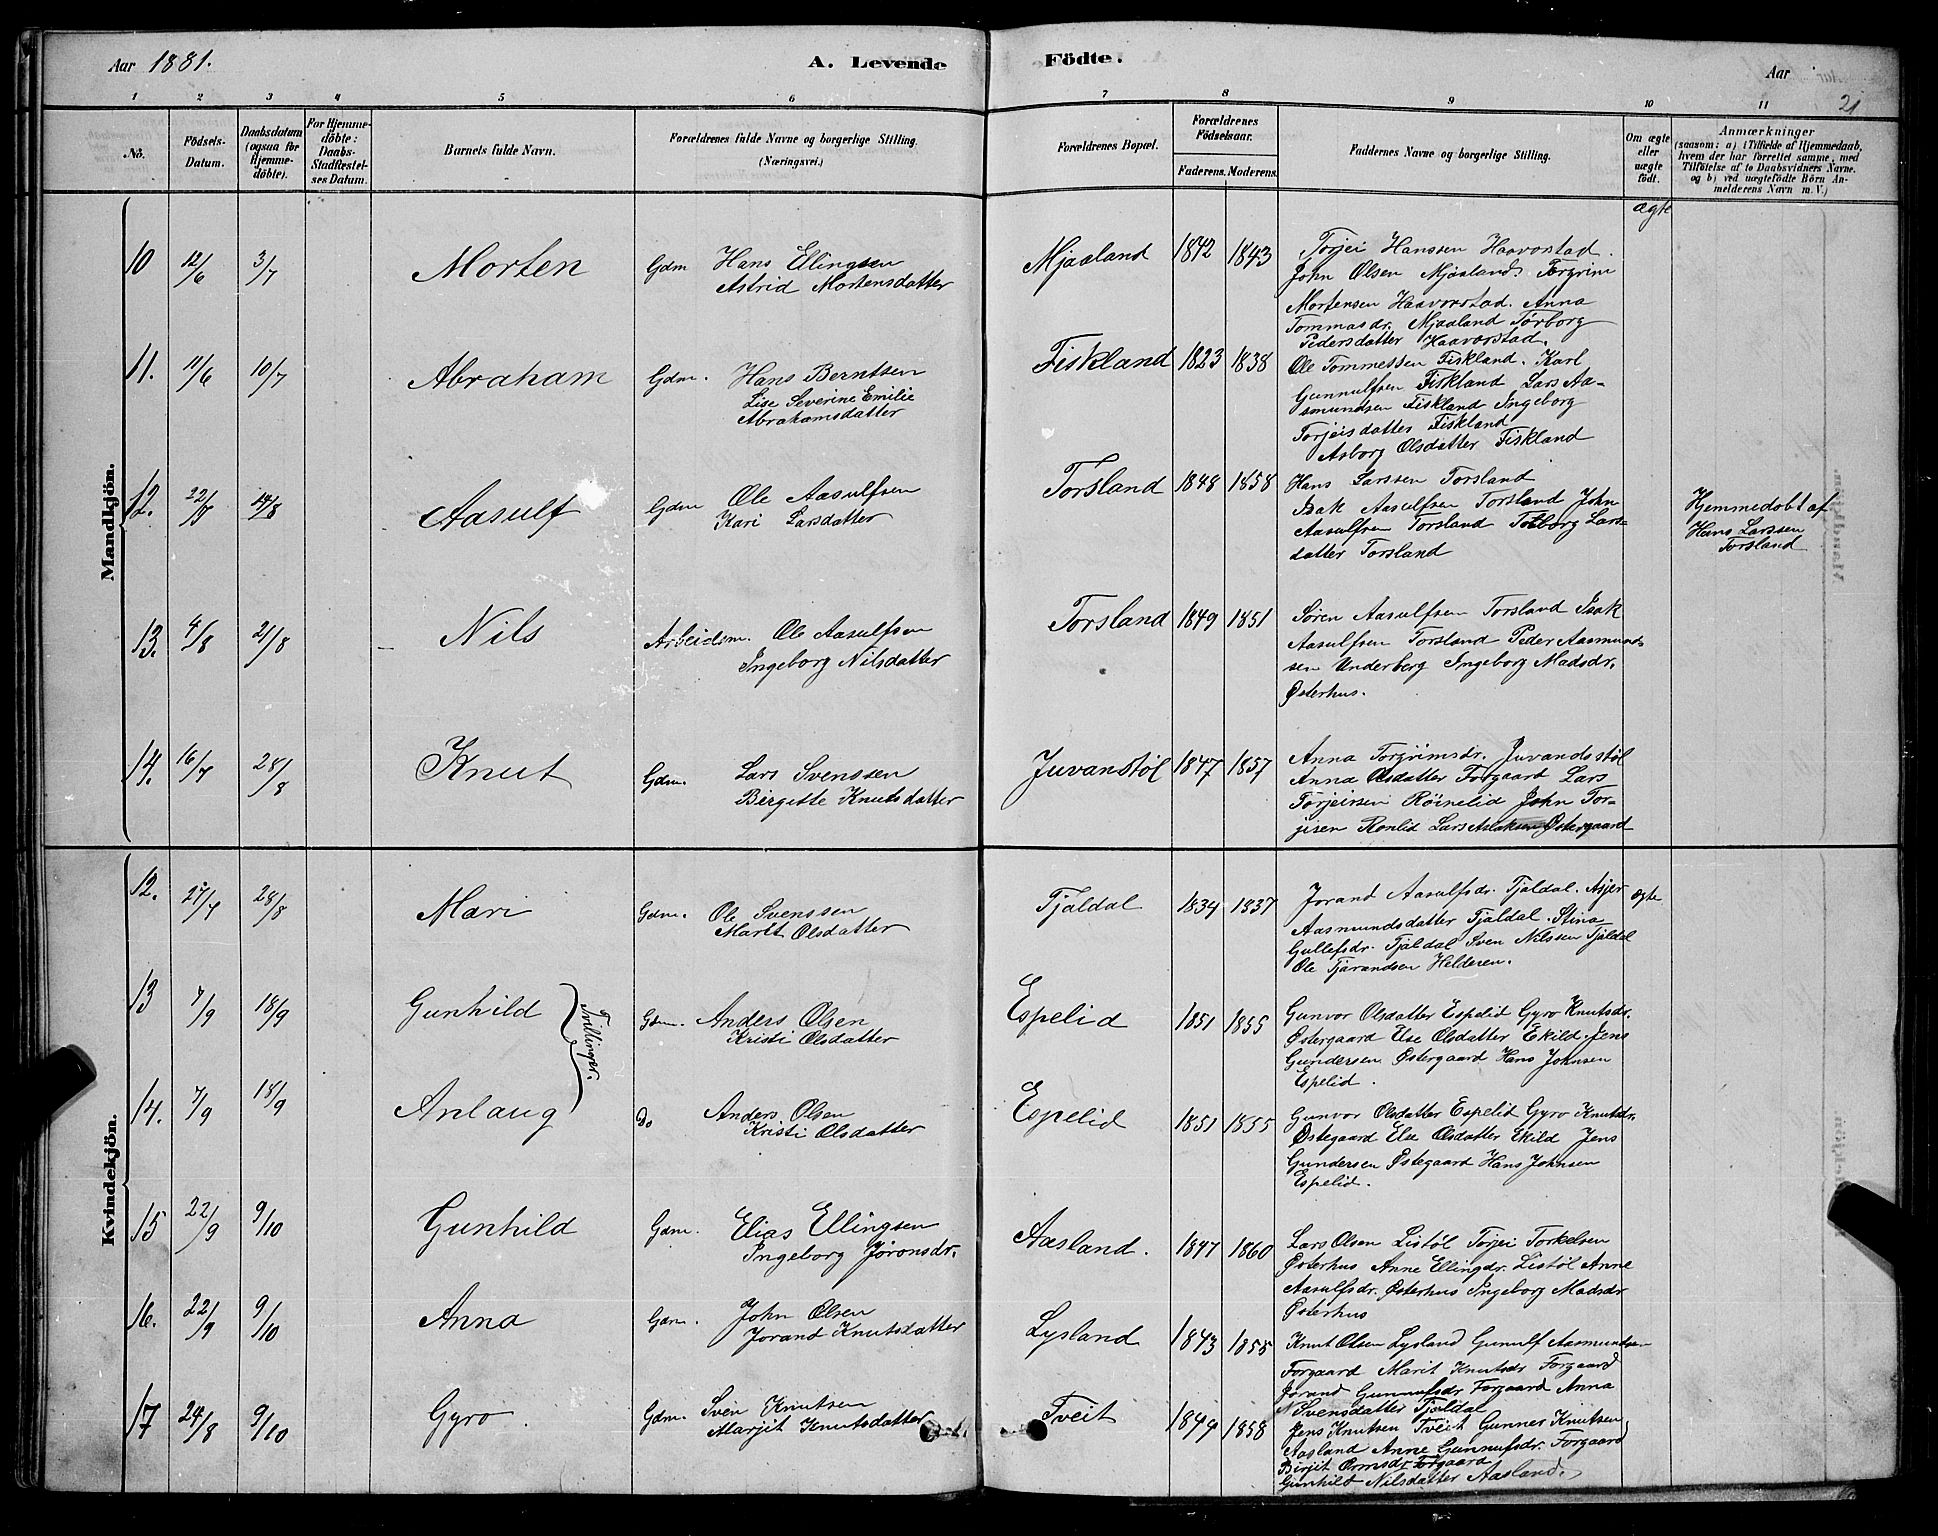 Aar 1881. A. Levende Födte. Aar
1 2 3 4 5 6 7 8 9 10 11 21
Nö. Födsels-Datum. Daabsdatum (ogsaa for Hjemme-döbte). For Hjemme-döbte: Daabs-Stadfæstel-ses Datum. Barnets fulde Navn. Forældrenes fulde Navne og borgerlige Stilling. (Næringsvei.) Forældrenes Bopæl. Forældrenes Födselsaar. Faderens. Moderens. Faddernes Navne og borgerlige Stilling. Om ægte eller uægte födt. Anmærkninger (saasom: a) i Tilfælde af Hjemmedaab, hvem der har forrettet samme, med Tilföielse af to Daabsvidners Navne. og b) ved uægtefödte Börn An-melderens Navn m. V.)
Mandkjön.
ægte
10 12/6 3/7 Morten Gdm Hans Ellingsen
Astrid Mortensdatter
Mjaaland 1842 1843 Torjei Hanssen Haavorstad.
John Olsen Mjaaland. Torgrim
Mortensen Haavorstad. Anna
Tommasdr. Mjaaland Torborg
Pedersdatter Haavorstad.
11. 11/6 10/7 Abraham Gdm. Hans Berntsen
Lise Severine Emilie
Abrahamsdatter
Fiskland 1823 1838 Ole Tommessen Fiskland. Karl
Gunnulfsen Fiskland Lars Aa-
smundsen Fiskland Ingeborg
Torjeisdatter Fiskland
Asborg Olsdatter Fiskland
12. 22/7 14/8 Aasulf Gdm Ole Aasulfsen
Kari Larsdatter
Torsland 1848 1858 Hans Larssen Torsland
Isak Aasulfsen Torsland John
Aasulfsen Torsland Torborg Lars-
datter Torsland
Hjemmedobt af
Hans Larssen
Torsland
13. 4/8 21/8 Nils Arbeidsm. Ole Aasulfsen
Ingeborg Nilsdatter
Torsland 1849 1851 Søren Aasulfsen Torsland Isak
Aasulfsen Torsland Peder Aasmund-
sen Underberg Ingeborg Madsdr.
Østerhus.
14. 16/7 28/8 Knut Gdm. Lars Svenssen
Birgitte Knutsdatter
Juvanstøl 1847 1857 Anna Torgrimsdr. Juvandsstøl
Anna Olsdatter Forgaard Lars
Torjeirsen Röinelid John Tor-
jisen Ronlid Lars Aslaksen Østergaard
Kvindekjön.
12. 27/7 28/8 Mari Gdm. Ole Svenssen
Marit Olsdatter
Tjaldal 1834 1837 Jorand Aasulfsdr. Tjaldal. Asjer ægte
Aasmundsdatter Tjaldal. Stina
Gullefsdr. Tjaldal Sven Nilssen Tjaldal
Ole Tjørandsen Helderen.
13 7/9 18/9 Gunhild Tvillinger. Gdm. Anders Olsen
Kristi Olsdatter
Espelid 1851 1855 Gunvor Olsdatter Espelid Gyro Knutsdr.
Østergaard Else Olsdatter Ekild. Jens
Gundersen Østergaard Hans Johnsen
Espelid.
14. 7/9 18/9 Anlaug do Anders Olsen
Kristi Olsdatter
Espelid 1851 1855 Gunvor Olsdatter Espelid Gyro Knutsdr.
Østegaard Else Olsdatter Ekild Jens
Gundersen Østegaard Hans Johnsen
Espelid.
15 22/9 9/10 Gunhild Gdm. Elias Ellingsen
Ingeborg Jøronsdr.
Aasland. 1847 1860 Lars Olsen Listøl Torjei Torkelsen
Østerhus Anne Ellingdr. Listöl Anne
Aasulfsdr. Østerhus Ingeborg Madsdr
Østerhus
16. 22/9 9/10 Anna Gdm. John Olsen
Jorand Knutsdatter
Lysland 1843 1855 Knut Olsen Lysland Gunulf Aasmundsen
Forgaard Marit Knutsdr Forgaard
Jorand Gunnufsdr Forgaard Anna
Svensdatter Tjaldal
17 24/8 9/10 Gyro. Gdm. Sven Knutsen
Marjit Knutsdatter
Tveit 1849 1858 Jens Knutsen Tveit Gunner Knutsen
Aasland Anne Gunnufsdr. Forgaard
Birjit Ormsdr Forgaard
Gunhild Nilsdatter Aasland.